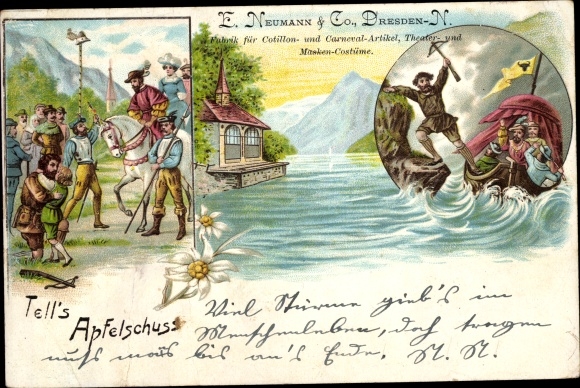 E. Neumann & Co., Dresden-N.
Fabrik für Cotillon- und Carneval-Artikel, Theater- und
Masken-Costüme.
Tell's
Apfelschuss
Viel Stürme gieb's im
Menschenleben, doch tragen
muß man's bis an's Ende. N. N.